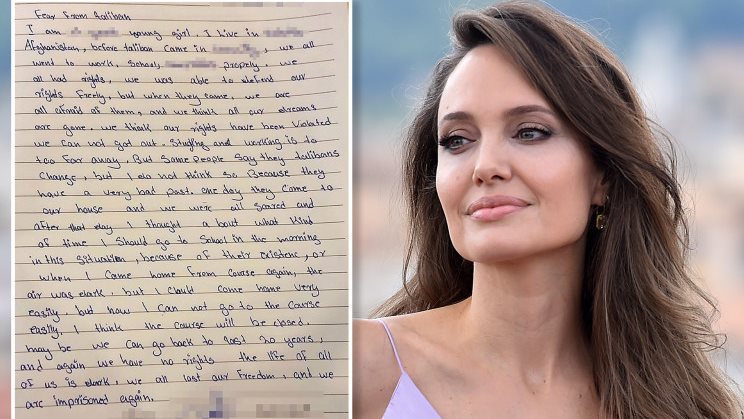 Fear From taliban
I am young girl. I live in
Afghanistan, before taliban came in , we all
went to work, school, properly. we
all had rights, we was able to defend our
rights freely, but when they come, we are
all afraid of them, and we think all our dreams
are gone. we think our rights have been violated
we can not got out. Studying and working is to
too far away. But Same people say they talibans
change, but I do not think so because they
have a very bad past. one day they come to
our house and we were all scared and
after that day I thought a bout what kind
of time I should go to school in the morning
in this situation, because of their existenc, or
when I came home from course again, the
air was dark. but I Could come home very
easily. but now I can not go to the course
easily. I think the course will be closed.
may be we can go back to last 20 years,
and again we have no rights the life of all
of us is dark, we all lost our freedom, and we
are imprisoned again.